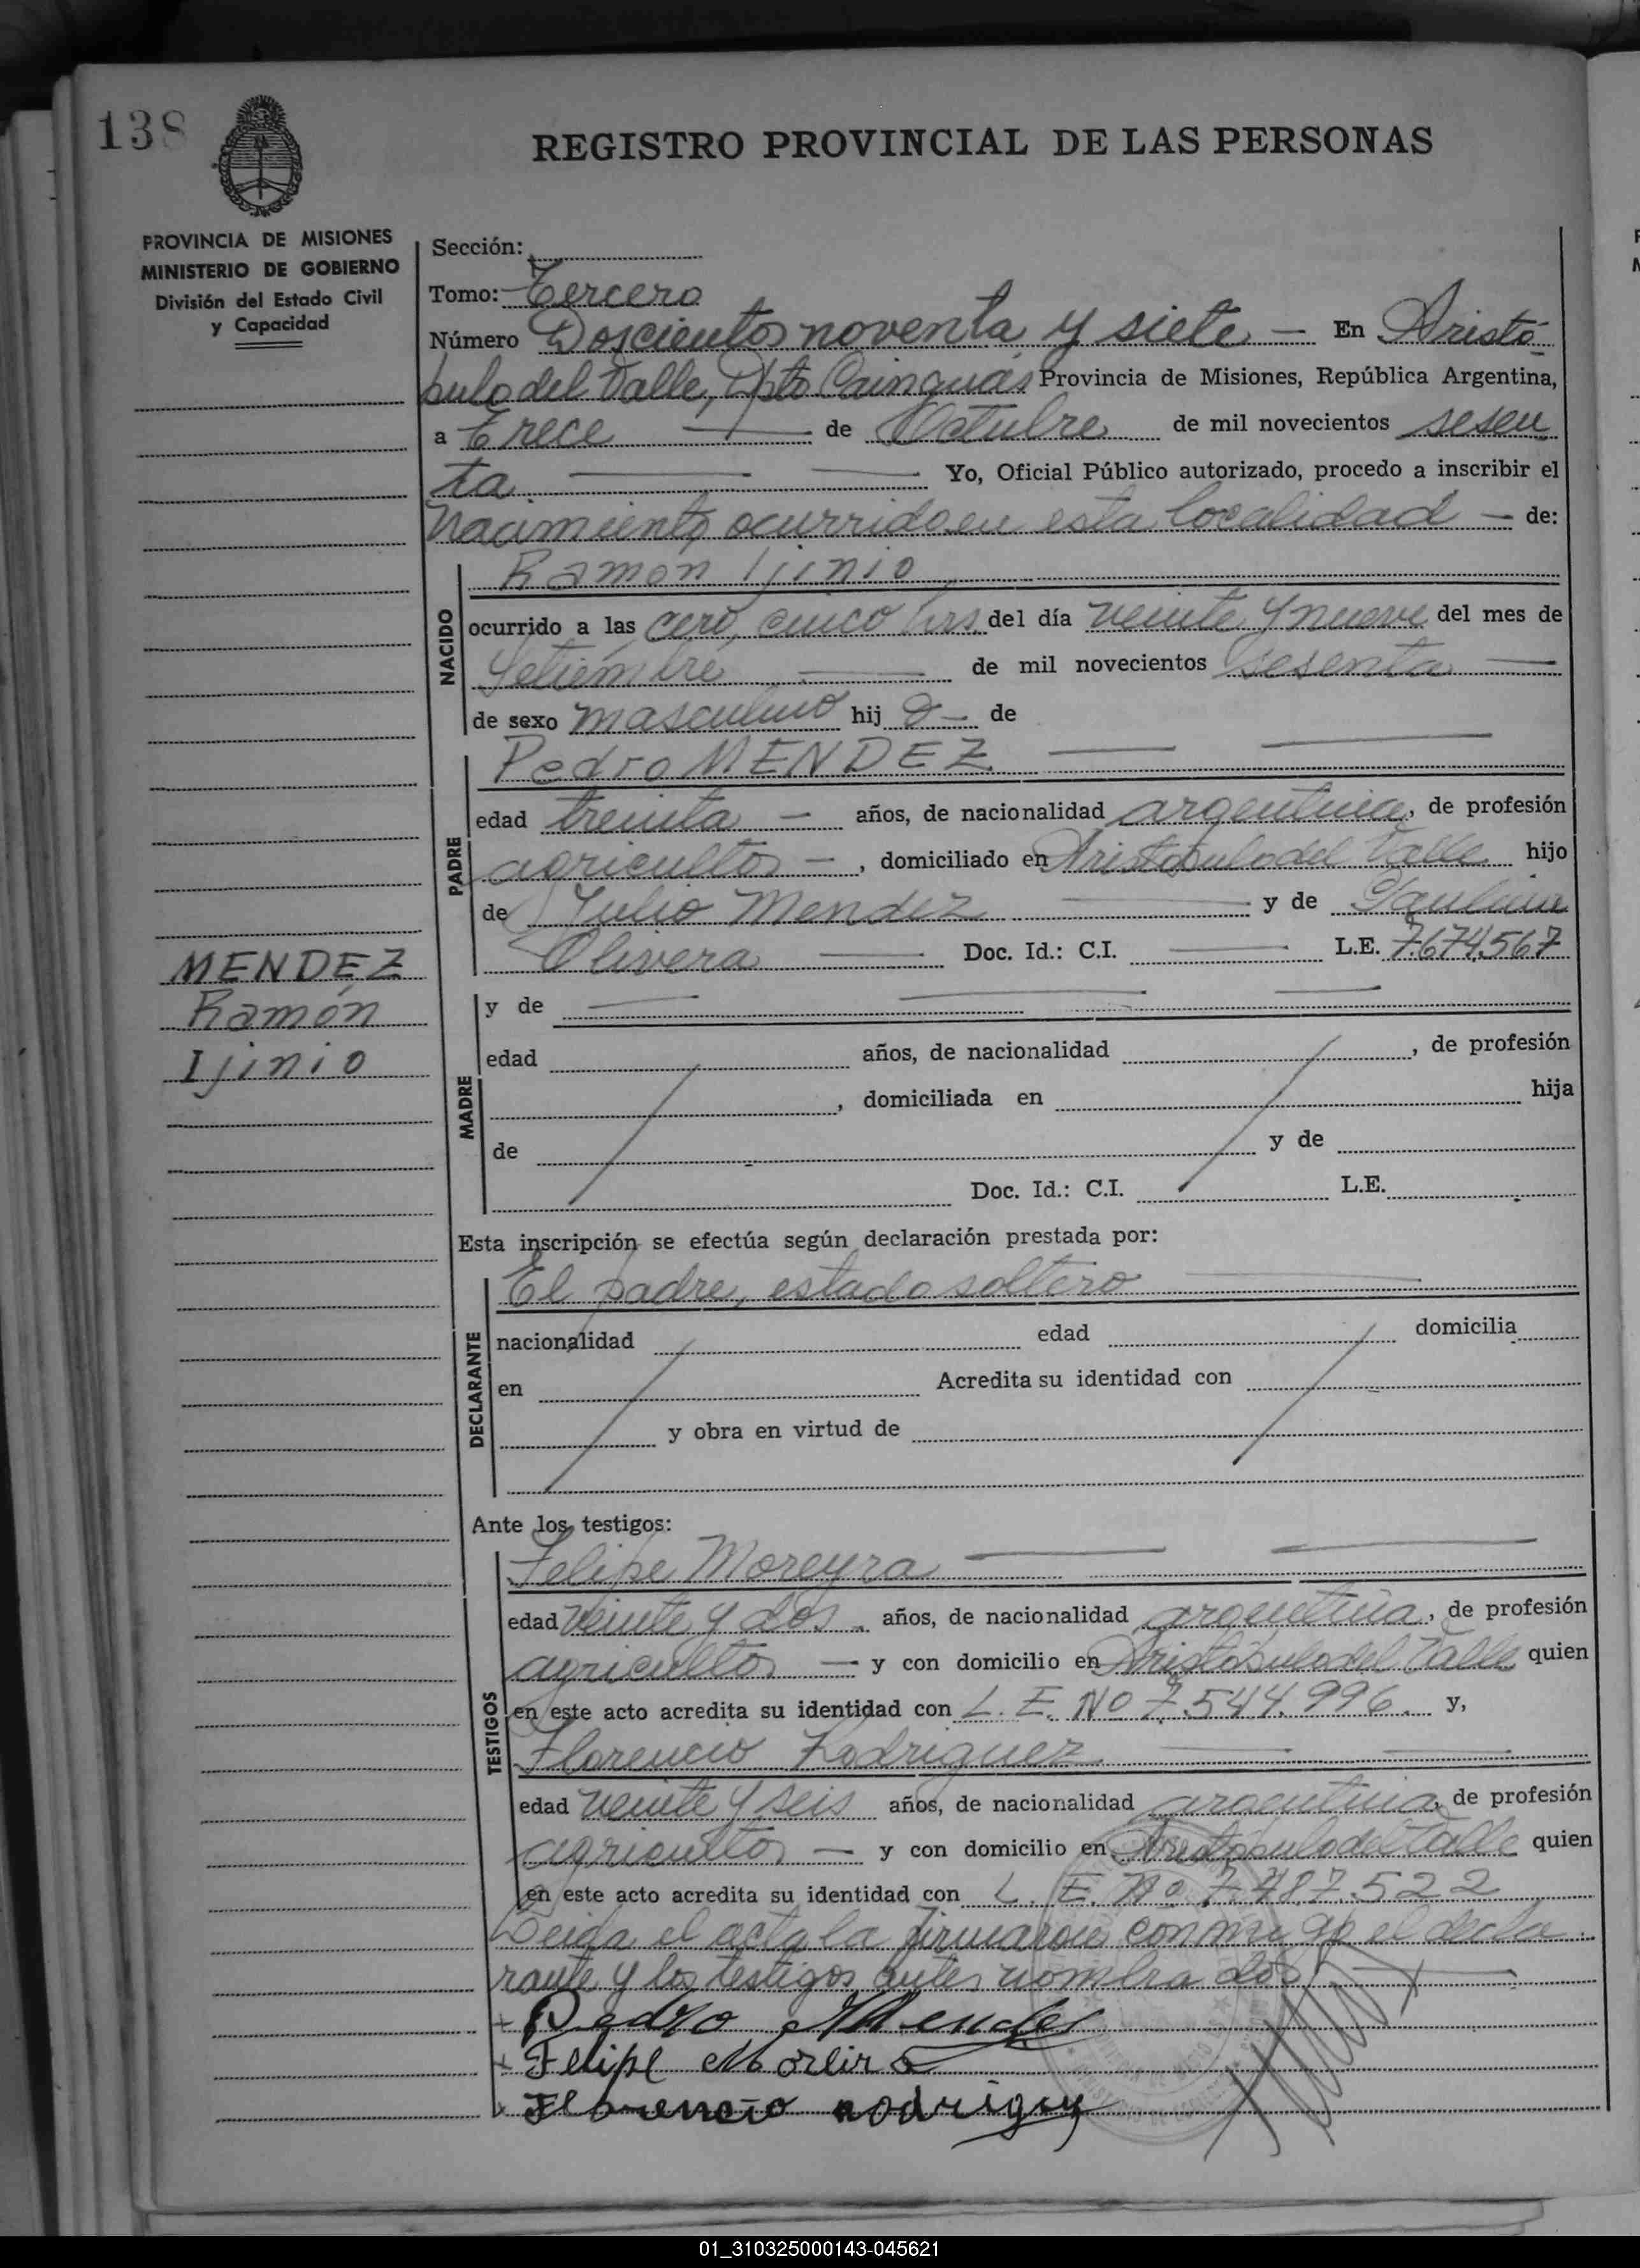 138
REGISTRO PROVINCIAL DE LAS PERSONAS
PROVINCIA DE MISIONES
MINISTERIO DE GOBIERNO
División del Estado Civil
y Capacidad
Sección:
Tomo: Tercero
Número Doscientos noventa y siete — En Aristó
bulo del Valle, Dpto Cainguás Provincia de Misiones, República Argentina,
a Trece — de Octubre de mil novecientos sesen
ta — — Yo, Oficial Público autorizado, procedo a inscribir el
Nacimiento ocurrido en esta localidad — de:
Ramon Ijinio
NACIDO
ocurrido a las cero, cinco hrs. del día veinte y nueve del mes de
Setiembre — de mil novecientos sesenta —
de sexo masculino hij o — de
Pedro MENDEZ — —
PADRE
edad treinta — años, de nacionalidad argentina, de profesión
agricultor — , domiciliado en Aristóbulo del Valle hijo
de Julio Mendez — y de Paulina
Olivera — Doc. Id.: C.I. — L.E. 7.674.567
MENDEZ
Ramón
Ijinio
y de — — —
MADRE
edad años, de nacionalidad , de profesión
, domiciliada en hija
de y de
Doc. Id.: C.I. L.E.
Esta inscripción se efectúa según declaración prestada por:
El padre, estado soltero —
DECLARANTE
nacionalidad edad domicilia
en Acredita su identidad con
y obra en virtud de
Ante los testigos:
Felipe Moreyra — —
TESTIGOS
edad veinte y dos años, de nacionalidad argentina, de profesión
agricultor — y con domicilio en Aristóbulo del Valle quien
en este acto acredita su identidad con L. E. Nº 7.544.996. y,
Florencio Rodriguez — —
edad veinte y seis años, de nacionalidad argentina, de profesión
agricultor — y con domicilio en Aristóbulo del Valle quien
en este acto acredita su identidad con L. E. Nº 7.487.522
Leida el acta la firmaron conmigo el decla
rante y los testigos antes nombrados —
+ Pedro Mendez
+ Felipe Moreira
x Florencio rodriguez
01_310325000143-045621